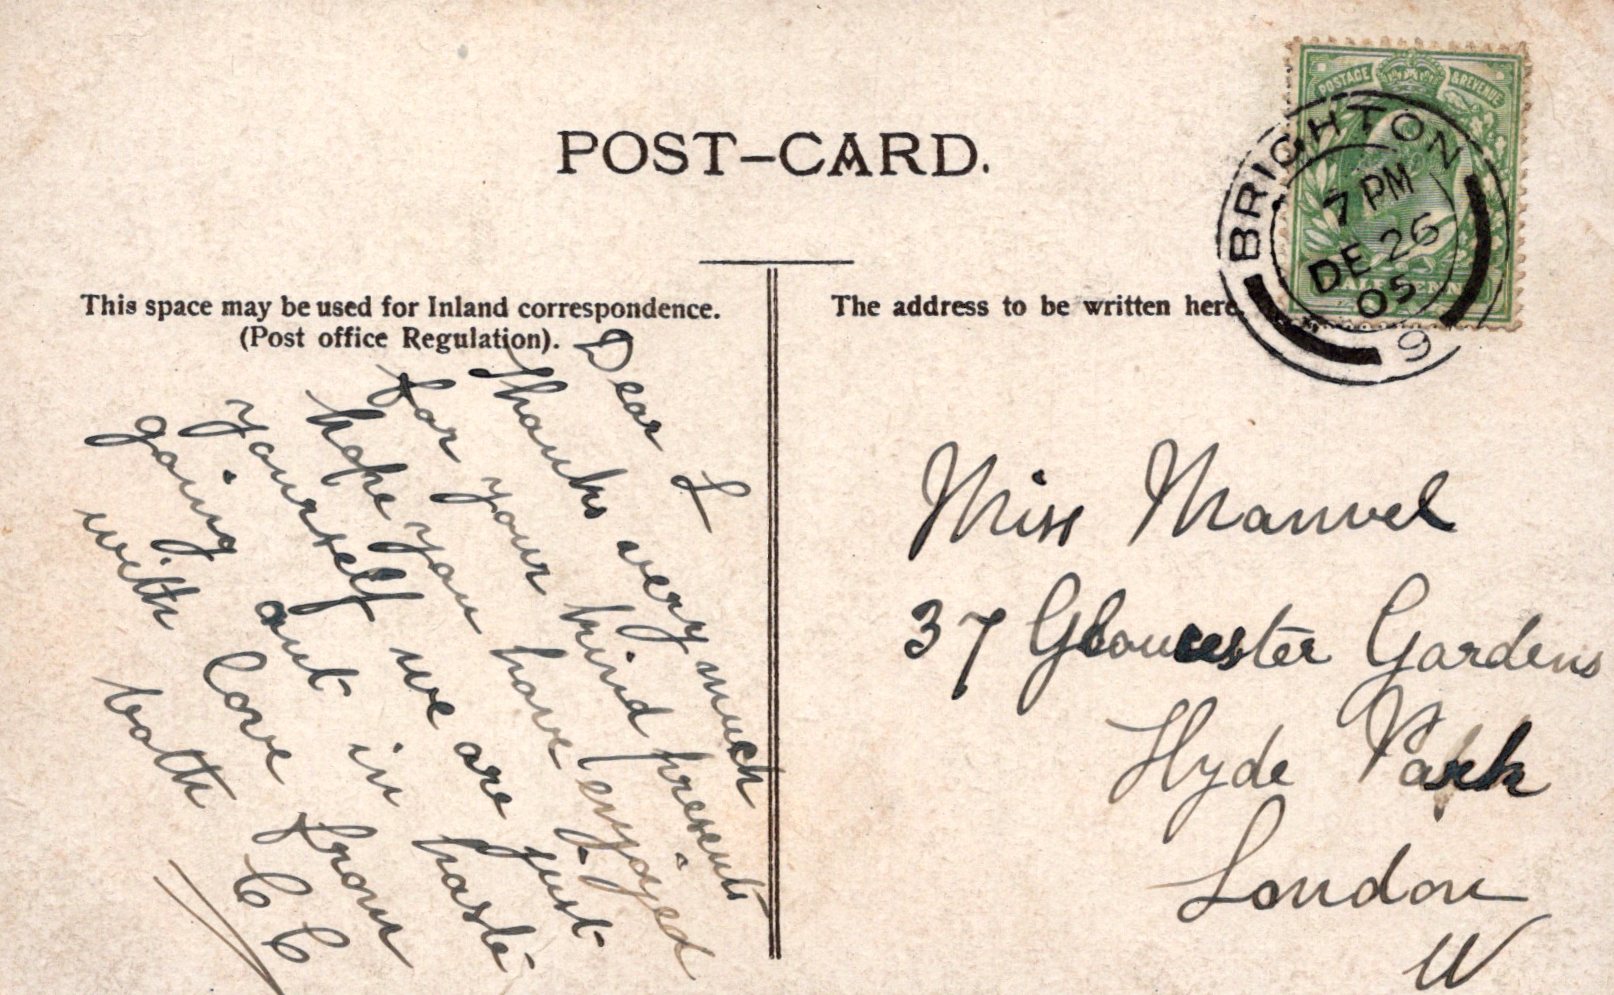 POST-CARD.
POSTAGE & REVENUE
HALFPENNY
BRIGHTON
7 PM
DE 26
05
9
This space may be used for Inland correspondence.
(Post office Regulation).
The address to be written here.
Dear L
Thanks very much
for your kind present
hope you have enjoyed
yourself we are just
going out in haste
with love from
both C C
Miss Manvel
37 Gloucester Gardens
Hyde Park
London
W